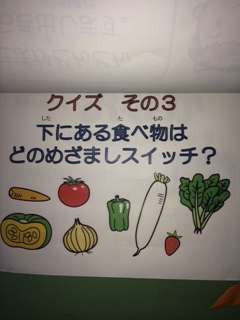 クイズ　その３
下にある食べ物は
した
た
もの
どのめざましスイッチ？